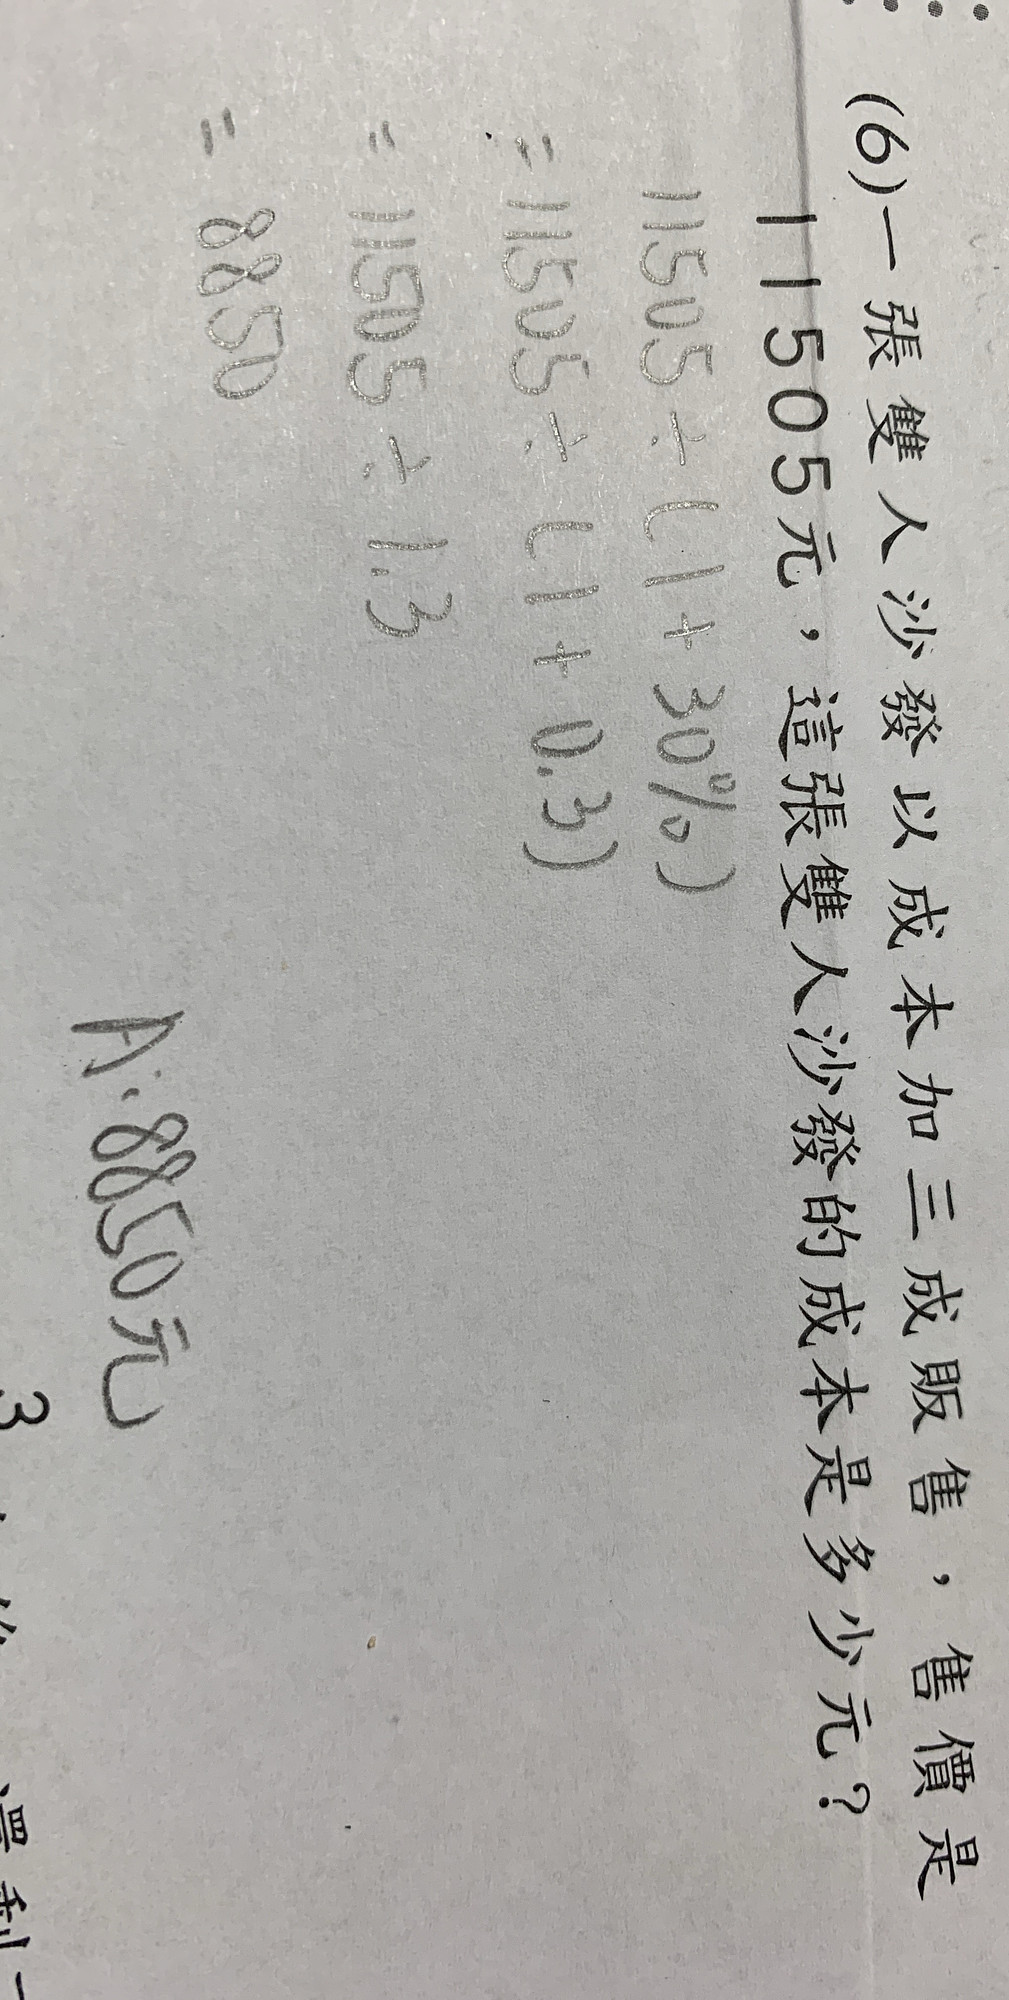 (6)一張雙人沙發以成本加三成販售，售價是
11505元，這張雙人沙發的成本是多少元？
11505÷(1+30%)
=11505÷(1+0.3)
=11505÷1.3
=8850
A:8850元
3